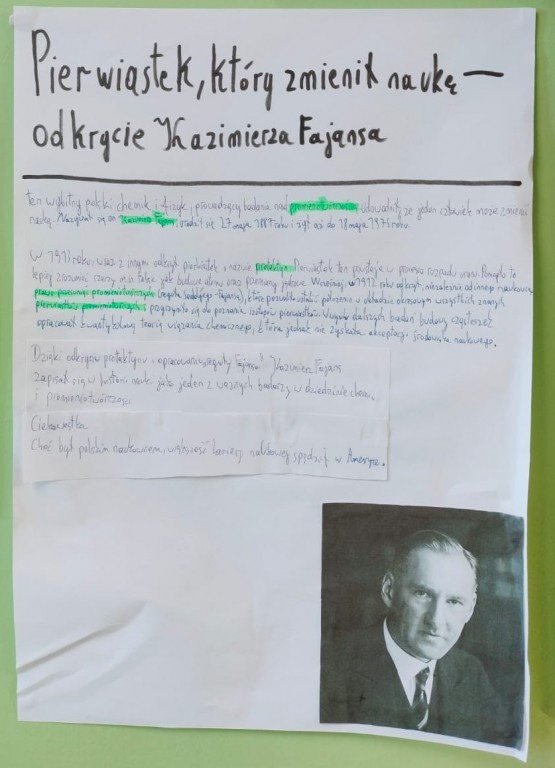 Pierwiastek, który zmienił naukę —
odkrycie Kazimierza Fajansa
ten wybitny polski chemik i fizyk, prowadzący badania nad promieniotwórczością udowodnił, że jeden człowiek może zmienić
naukę. Nazywał się on Kazimierz Fajans, urodził się 27 maja 1887 roku i żył aż do 18 maja 1975 roku.
W 1913 roku wraz z innym odkrył pierwiastek o nazwie protaktyn. Pierwiastek ten powstaje w procesie rozpadu uranu. Pomogło to
lepiej zrozumieć rzeczy, ma takie jak budowa atomu oraz przemiany jądrowe. Wcześniej w 1912 roku odkrył, niezależnie od innego naukowca
prawo przemian promieniotwórczych (reguła Soddy'ego-Fajansa), które pozwoliło ustalić położenie w układzie okresowym wszystkich znanych
pierwiastków promieniotwórczych i przyczyniło się do poznania izotopów pierwiastków. W ciągu dalszych badań budowy cząsteczek
opracował kwantytatywną teorię wiązania chemicznego, która jednak nie zyskała akceptacji środowiska naukowego.
Dzięki odkryciu protaktynu i opracowaniu „reguły Fajansa” Kazimierz Fajans
zapisał się w historii nauki jako jeden z ważnych badaczy w dziedzinie chemii
i promieniotwórczości
Ciekawostka
Choć był polskim naukowcem, większość kariery naukowej spędził w Ameryce.